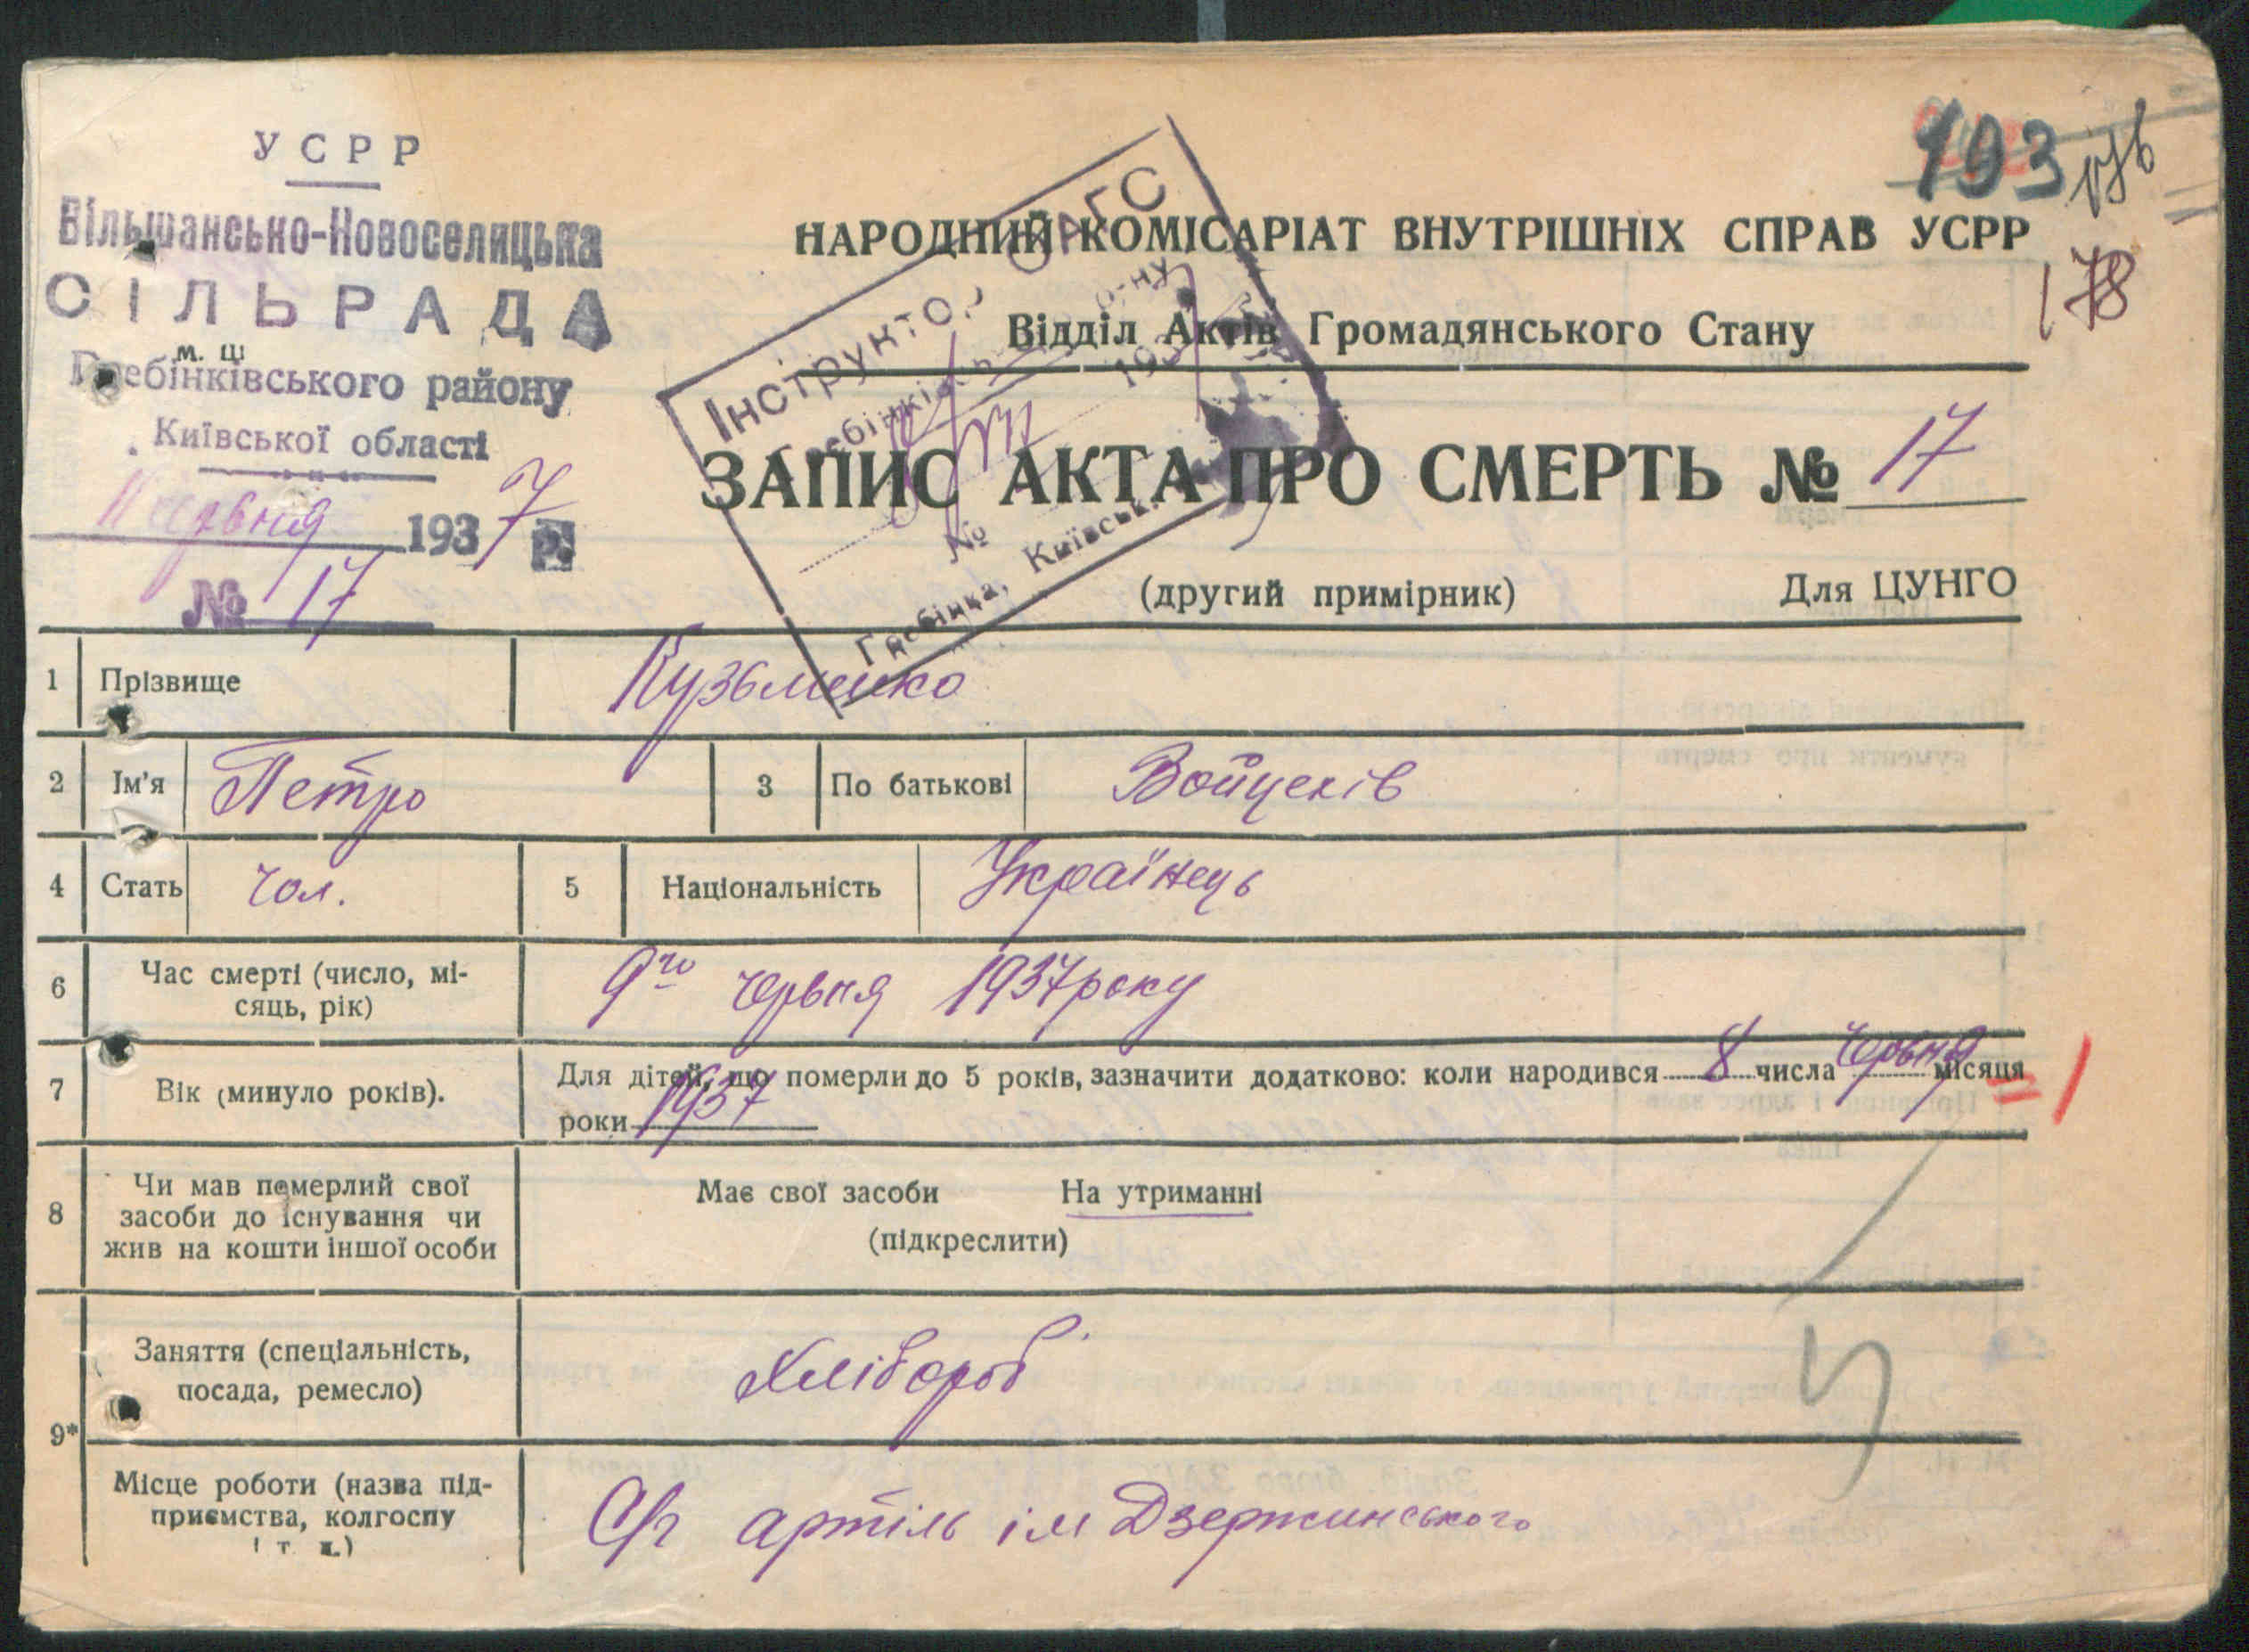 УСРР
Вільшансько-Новоселицька
СІЛЬРАДА
м. ш
Гребінківського району
Київської області
11 червня 1937 р.
№ 17
193
178
НАРОДНИЙ КОМІСАРІАТ ВНУТРІШНІХ СПРАВ УСРР
Відділ Актів Громадянського Стану
Інструктор ЗАГС
№
Гребінка, Київськ.
ЗАПИС АКТА ПРО СМЕРТЬ № 17
(другий примірник) Для ЦУНГО
1 Прізвище Кузьменко
2 Ім'я Петро 3 По батькові Войцехів
4 Стать Чол. 5 Національність Українець
6 Час смерті (число, мі-
сяць, рік) 9го червня 1937 року
7 Вік (минуло років). Для дітей, що померли до 5 років, зазначити додатково: коли народився 8 числа червня місяця
роки 1937
8 Чи мав померлий свої
засоби до існування чи
жив на кошти іншої особи
Має свої засоби На утриманні
(підкреслити)
9*
Заняття (спеціальність,
посада, ремесло) Хлібороб
Місце роботи (назва під-
приємства, колгоспу
і т. д.) С/г артіль ім Дзержинського